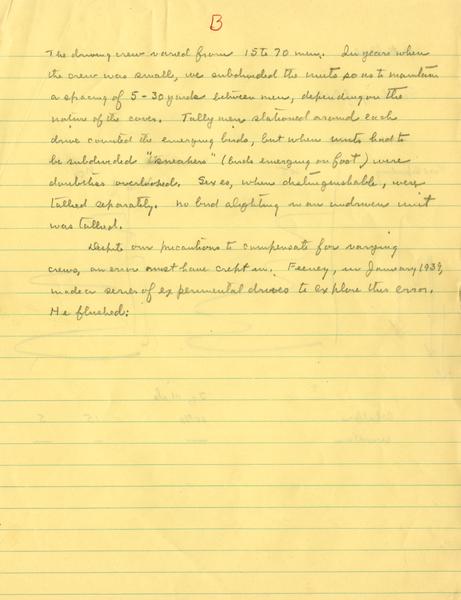 B
The driving crew varied from 15 to 70 men. In years when
the crew was small, we subdivided the units so as to maintain
a spacing of 5-30 yards between men, depending on the
nature of the cover. Tally men stationed around each
drive counted the emerging birds, but when units had to
be subdivided "sneakers" (birds emerging on foot) were
doubtless overlooked. Sexes, when distinguishable, were
tallied separately. No bird alighting in an undriven unit
was tallied.
Despite our precautions to compensate for varying
crews, an error must have crept in. Feeney, in January 1939,
made a series of experimental drives to explore this error.
He flushed: